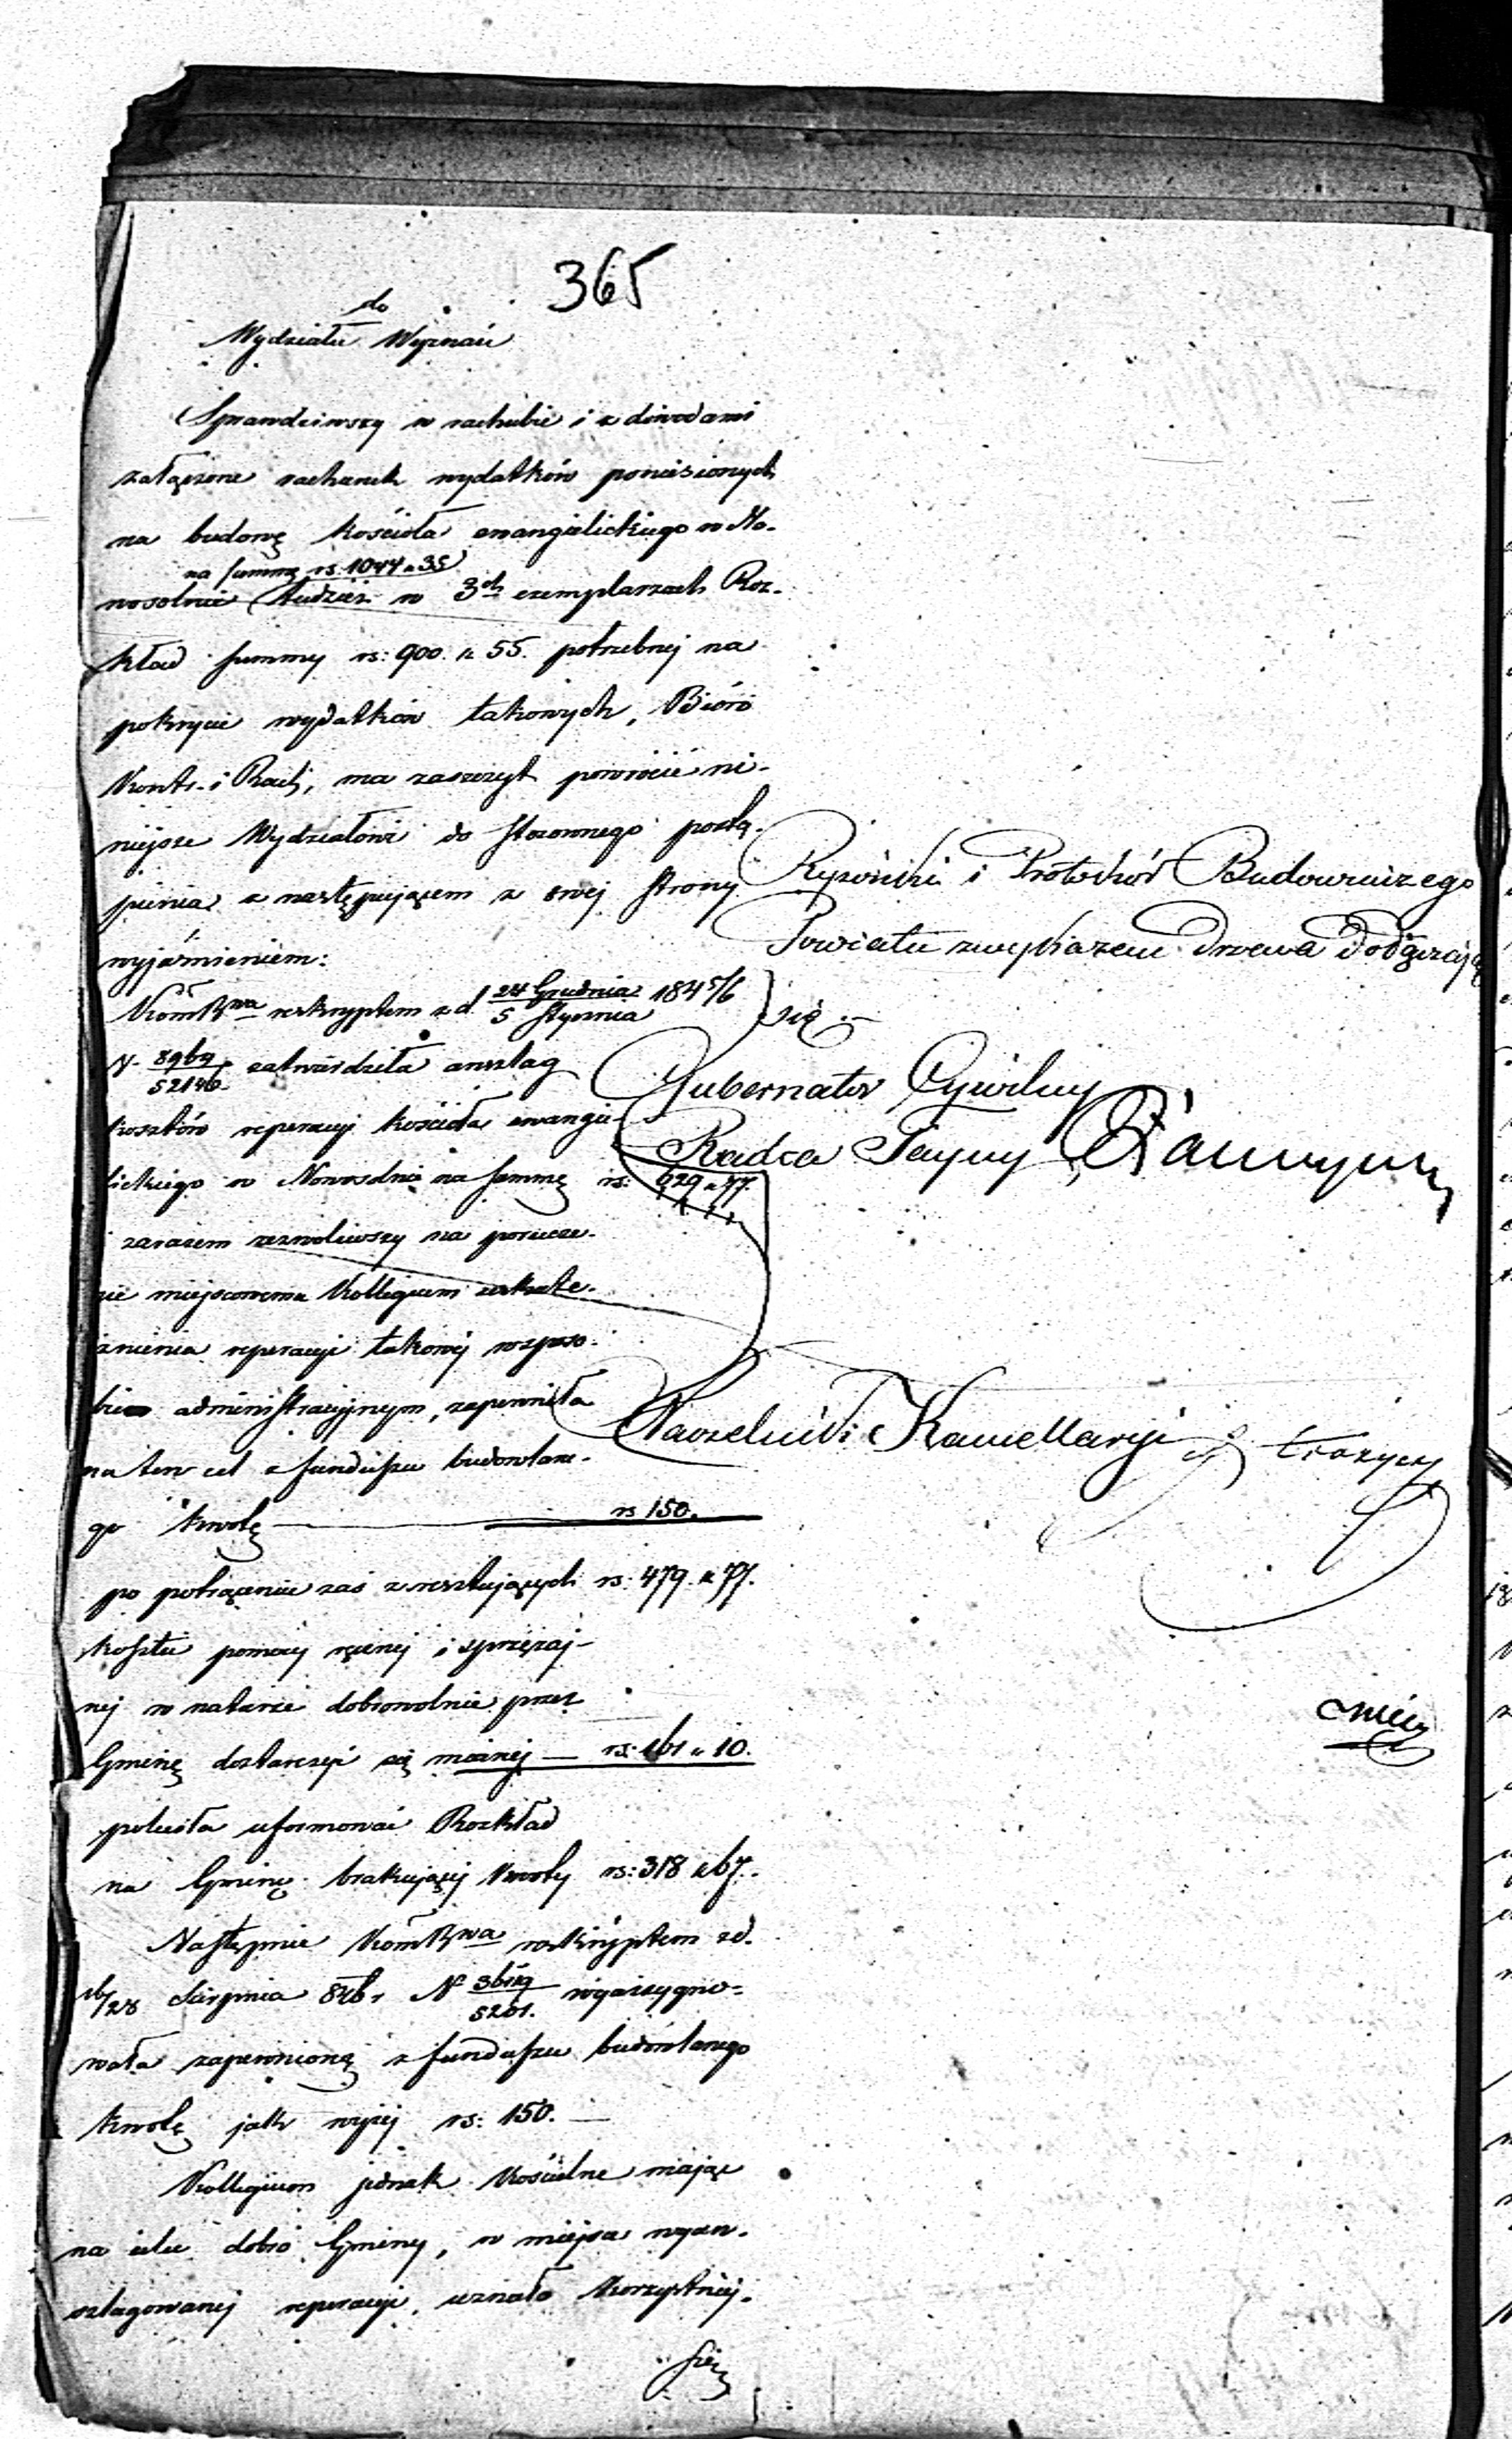 365
do
Wydziału Wyznań
Sprawdziwszy w rachubie i z dowodami
załączone rachunek wydatków poniesionych
na budowę kościoła ewangielickiego w No-
na summę rs. 1044 k 35
wosolnie tudzież w 3ch exemplarzach Roz-
kład summy rs: 900. k 55. potrzebnej na
pokrycie wydatków takowych, Bióro
Kontr. i Rach, ma zaszczyt powrócić ni-
niejsze Wydziałowi do stosownego postą-
pienia z następującem z swej strony
wyjaśnieniem:
KomRwa reskryptem z d. 24 Grudnia/5 Stycznia 1845/6
N. zatwierdziła anszlag
kosztów reperacyi kościoła ewangie-
lickiego w Nowosolnie na summę rs: 629 k 77.
i zarazem zezwoliwszy na porucze-
nie miejscowemu Kollegium uskute-
cznienia reperacyi takowej w sposo-
bie administracyjnym, zapewniła
na ten cel z funduszu budowlane-
go kwotę rs 150.
po potrąceniu zaś z resztujących rs. 479. k 77.
kosztu pomocy ręcznej i sprzężaj-
nej w naturze dobrowolnie przez
Gminę dostarczyć się mającej — rs: 161 k 10.
poleciła uformować Rozkład
na Gminę brakującej kwoty rs: 318 k 67.
Następnie KomRwa reskryptem z d.
16/28 Sierpnia 846 r N wyassygno-
wała zapewnioną z funduszu budowlanego
kwotę jak wyżej rs: 150. —
Kollegium jednak Kościelne mając
na celu dobro Gminy, w miejsce wyan-
szlagowanej reperacyi, uznało korzystniej-
sze
Rysunki i Protokół Budowniczego
Powiatu z wykazem drzewa dołączają
się. —
Gubernator Cywilny
Radca Tayny
Naczelnik Kancellaryi